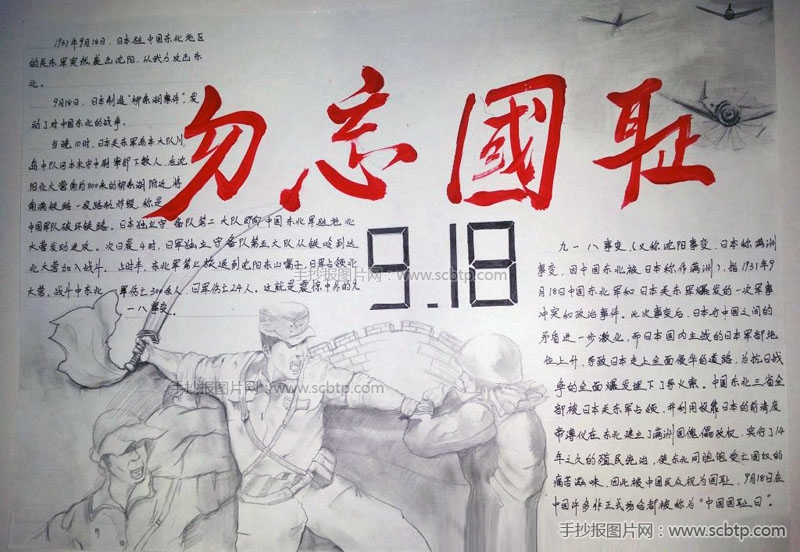 1931年9月18日，日本驻中国东北地区
的关东军突然袭击沈阳，以武力攻击东
北。
9月18日，日本制造"柳条湖事件"，发
动了对中国东北的战争。
当晚10时，日本关东军岛本大队川
岛中队河本末守中尉率部下数人，在沈
阳北大营南约800米的柳条湖附近，将
南满铁路一段路轨炸毁，称是
中国军队破坏铁路。日本独立守备队第二大队即向中国东北军驻地北
大营发动进攻。次日晨4时，日军独立守备队第五大队从铁岭到达
北大营加入战斗。5时半，东北军第七旅退到沈阳东山嘴子，日军占领北
大营。战斗中东北军伤亡300余人，日军伤亡24人。这就是震惊中外的九
一八事变。
勿忘國耻
9.18
九一八事变，（又称沈阳事变，日本称满洲
事变，因中国东北被日本称作满洲），指1931年9
月18日中国东北军和日本关东军爆发的一次军事
冲突和政治事件。此次事变后，日本与中国之间的
矛盾进一步激化，而日本国内主战的日本军部地
位上升，导致日本走上全面侵华的道路，为抗日战
争的全面爆发埋下了导火索。中国东北三省全
部被日本关东军占领，并利用投靠日本的前清废
帝溥仪在东北建立了满洲国傀儡政权，实行了14
年之久的殖民统治，使东北同胞饱受亡国奴的
痛苦滋味，因此被中国民众视为国耻，9月18日在
中国许多非正式场合都被称为"中国国耻日"。
手抄报图片网：www.scbtp.com
手抄报图片网：www.scbtp.com
手抄报图片网：www.scbtp.com